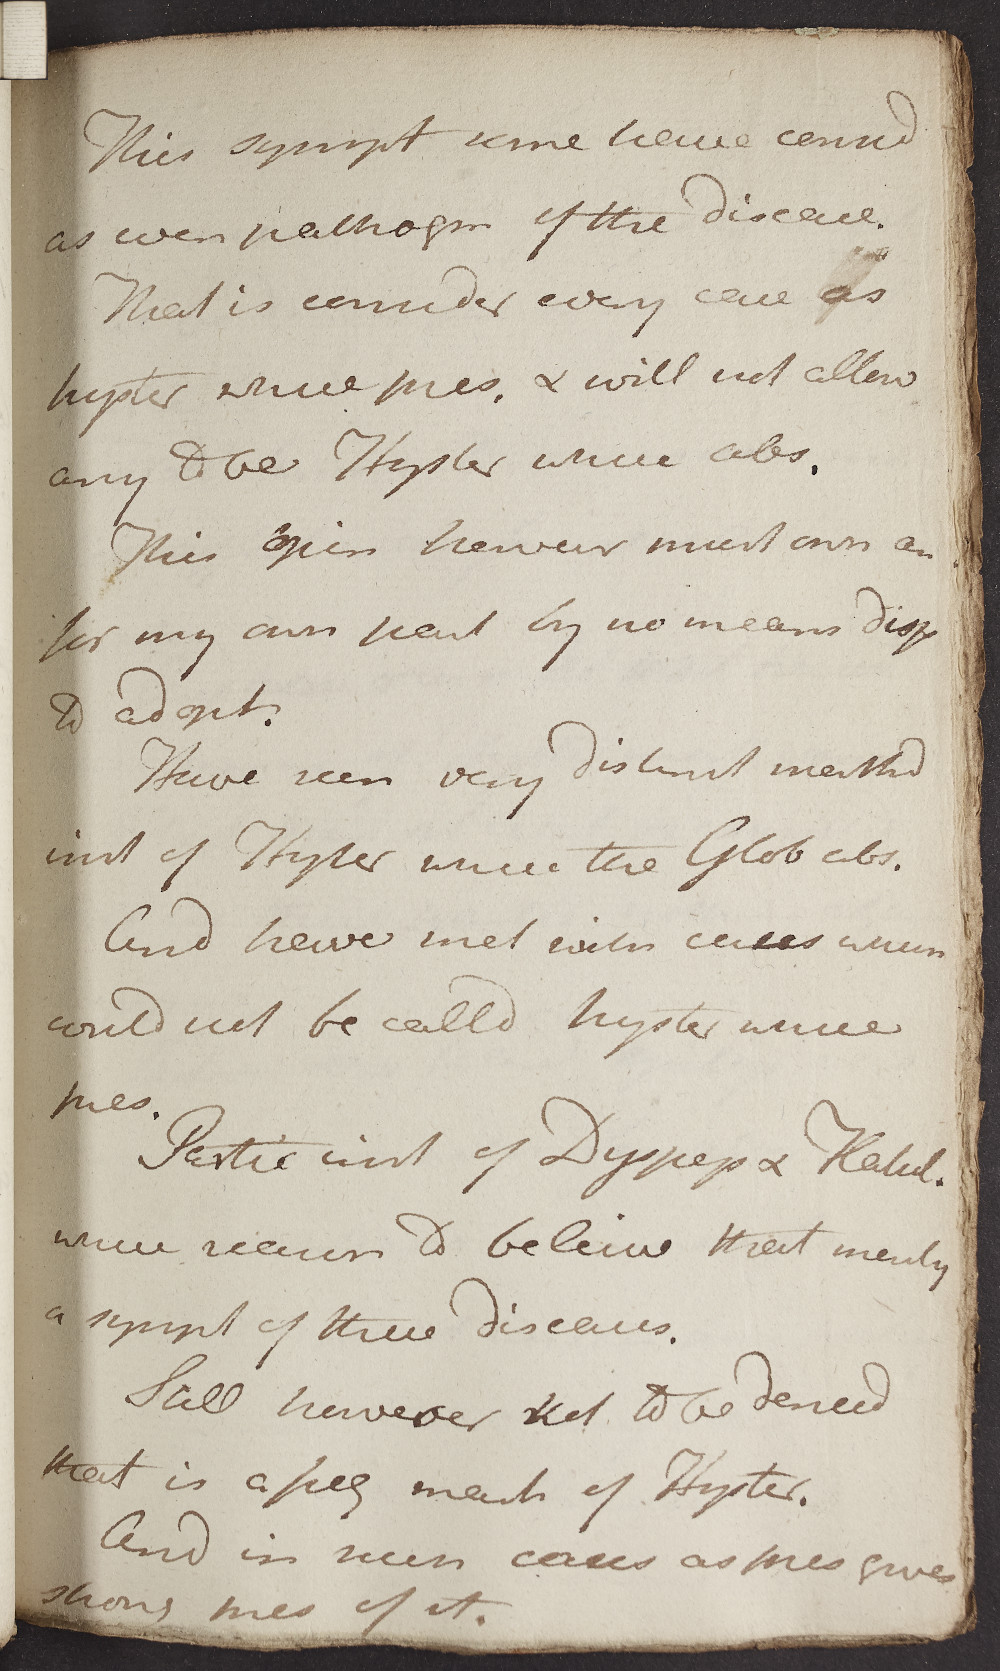 This sympt some have consid
as even pathogn of the disease.
That is consider every case as
hyster where pres. & will not allow
any to be Hyster where abs.
This opin however must own am
for my own part by no means disp
to adopt.
Have seen very distinct markd
inst of Hyster where the Glob abs.
And have met with cases where
could not be calld hyster where
pres.
Partic inst of Dyspeps &
where reason to believe that merely
a sympt of these diseases.
Still however not to be denied
that is a freq mark of Hyster.
And in such cases as pres gives
strong pres of it.